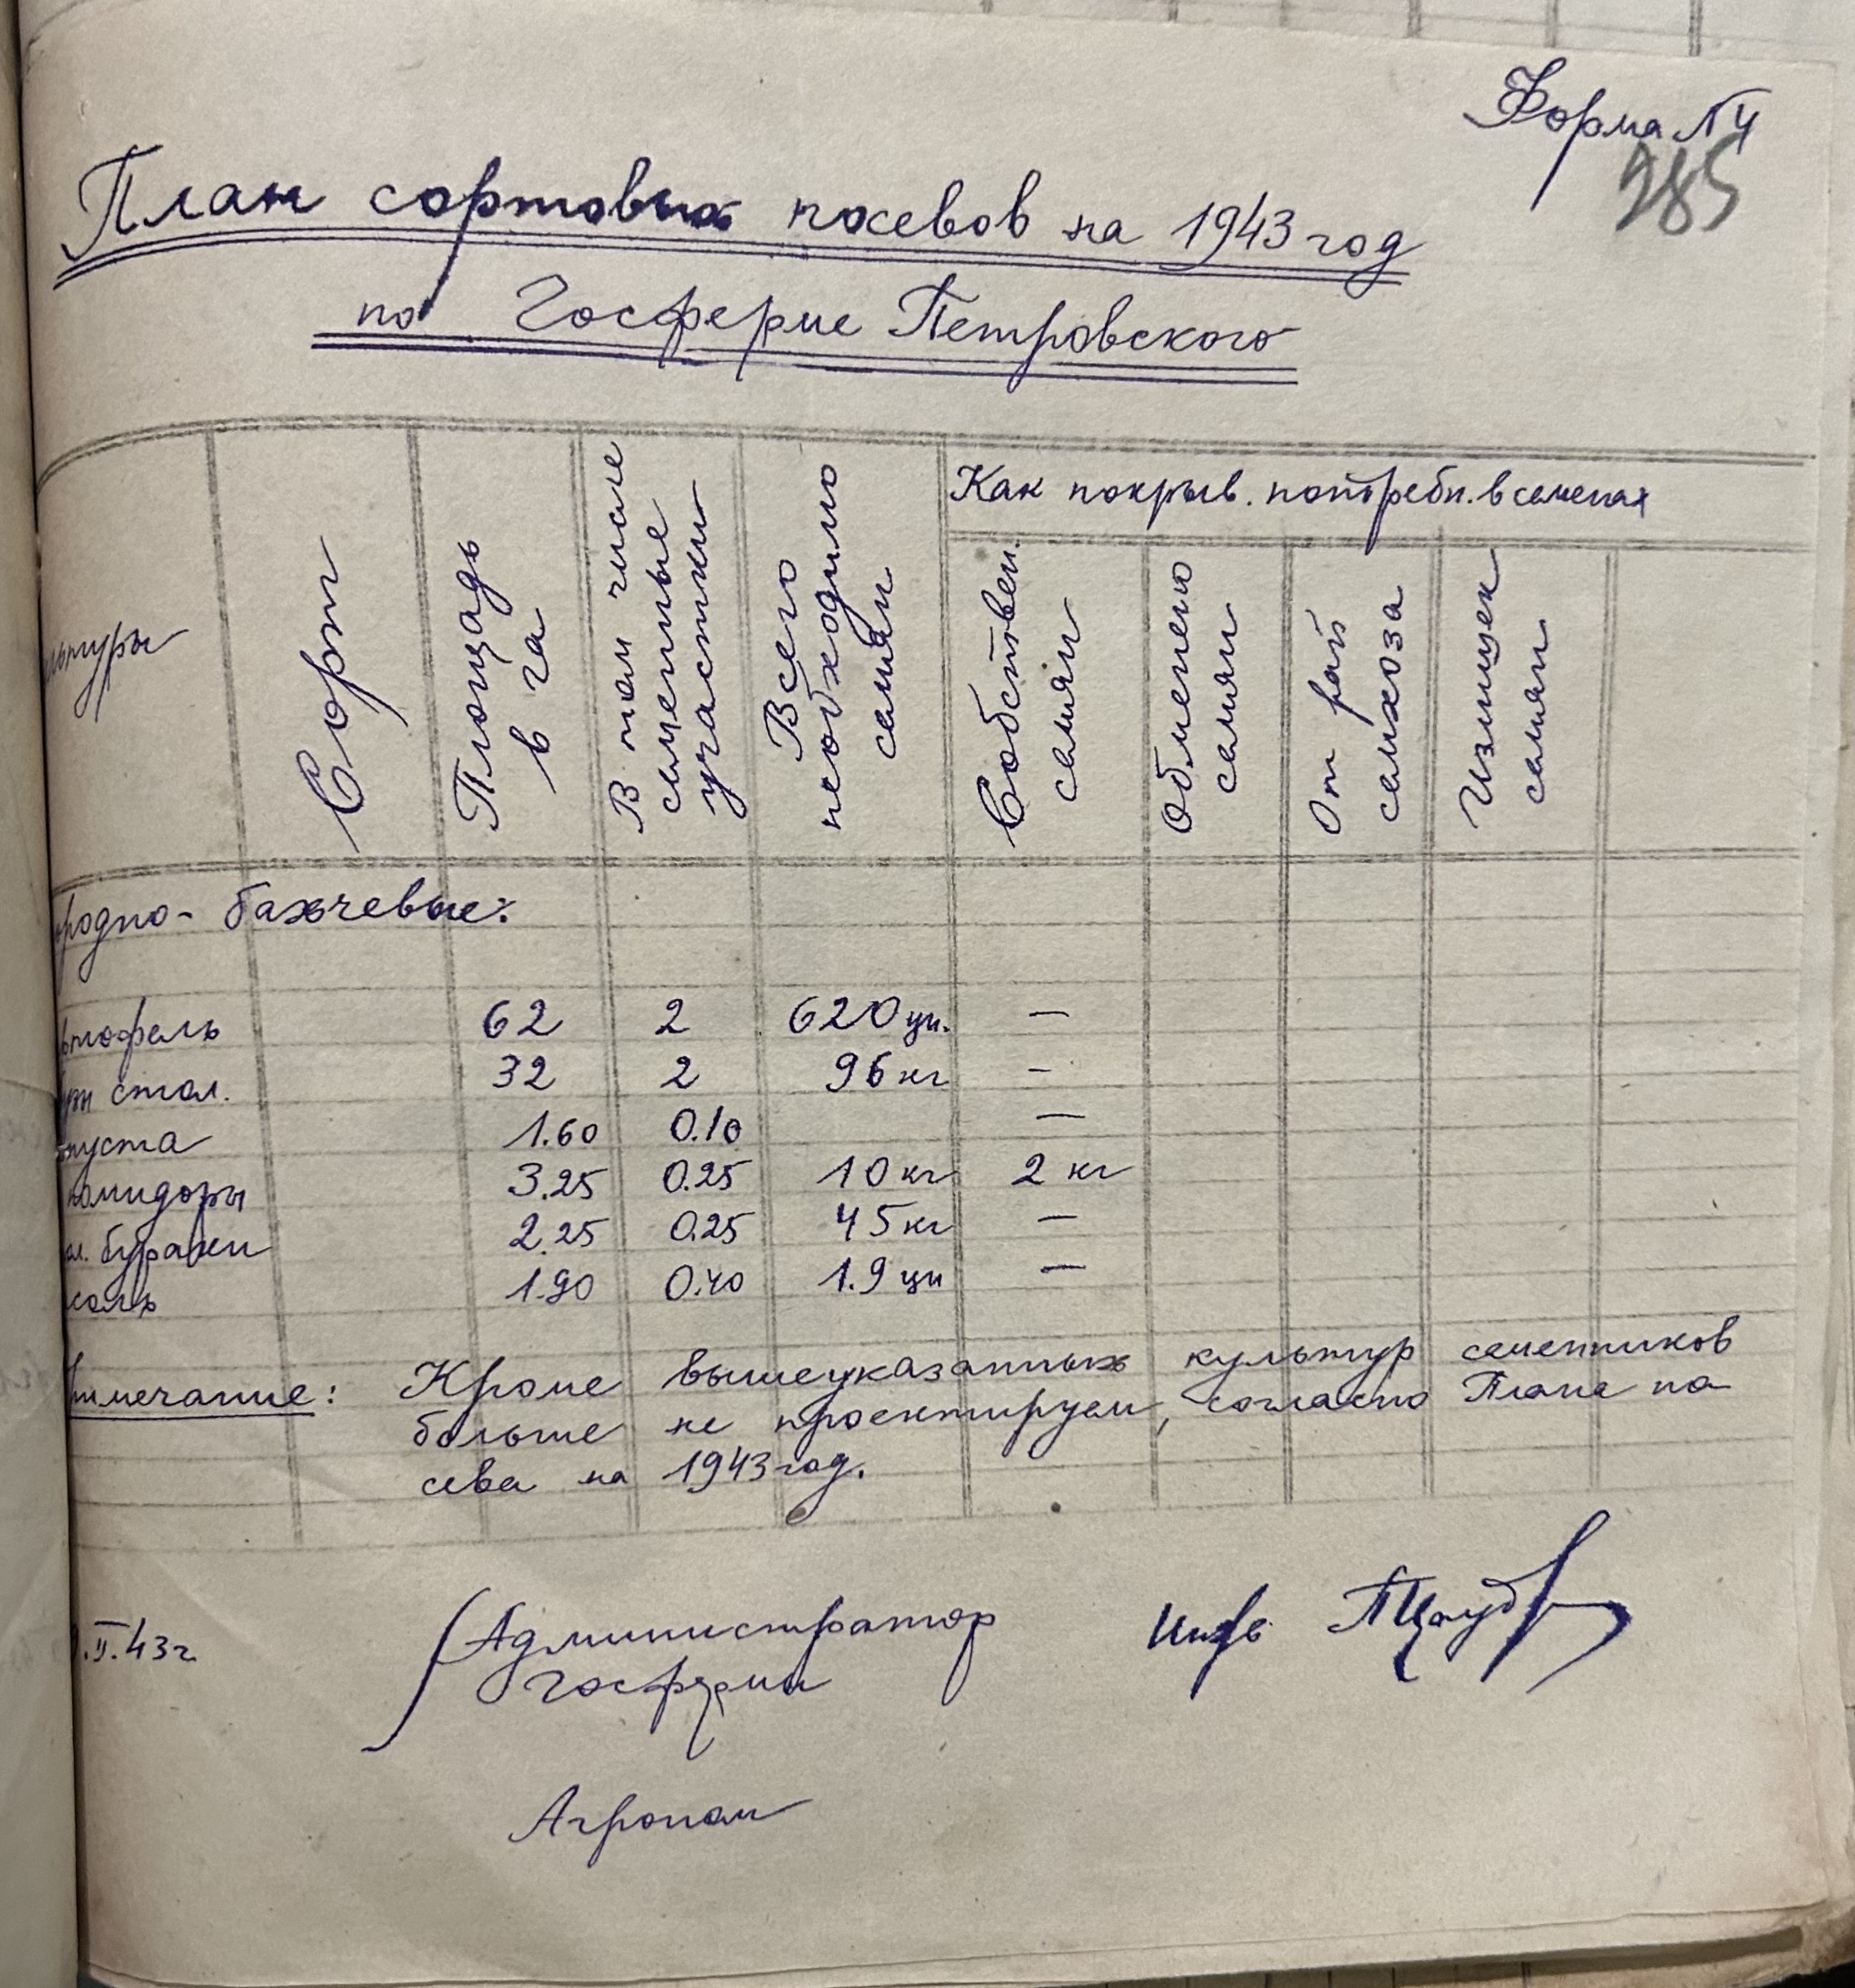 Форма №4
285
План сортовых посевов на 1943 год
по Госферме Петровского
льтуры
Сорт
Площадь в га
В том числе семенные участки
Всего необходимо семян
Как покрыв. потребн. в семенах
Собствен. семян
Обменено семян
От рай семхоза
Излишек семян
ородно - бахчевые:
ртофель 62 2 620 цн. —
рзы стол. 32 2 96 кг —
пуста 1.60 0.10 —
помидоры 3.25 0.25 10 кг 2 кг
ол. бураки 2.25 0.25 45 кг —
соль 1.90 0.40 1.9 цн —
имечание: Кроме вышеуказанных культур семенников
больше не проектируем, согласно Плана по
сева на 1943 год.
.II.43 г. Администратор
Госфермы
Агроном